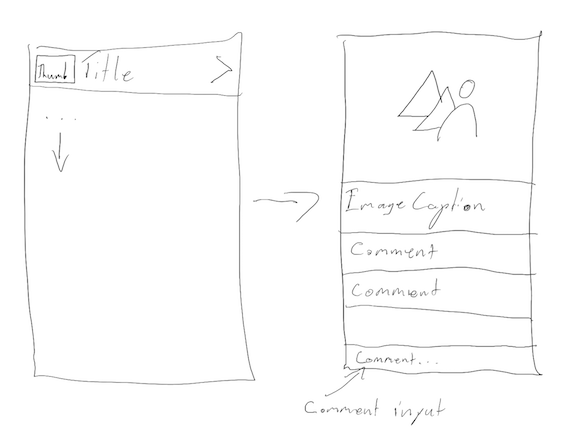 Thumb Title >
. . .
Image Caption
Comment
Comment
Comment...
Comment input